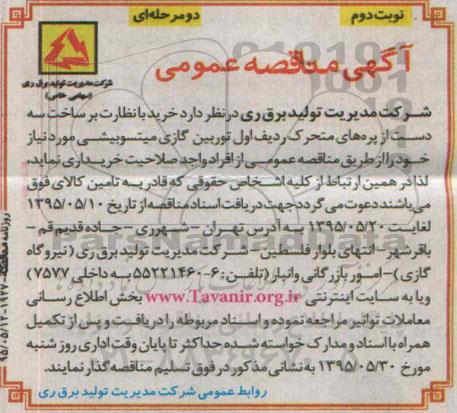 نوبت دوم
دو مرحله‌ای
آگهی مناقصه عمومی
شرکت مدیریت تولید برق ری
(سهامی خاص)
شرکت مدیریت تولید برق ری در نظر دارد خرید با نظارت بر ساخت سه
دست از پره‌های متحرک ردیف اول توربین گازی میتسوبیشی مورد نیاز
خود را از طریق مناقصه عمومی از افراد واجد صلاحیت خریداری نماید،
لذا در همین ارتباط از کلیه اشخاص حقوقی که قادر به تامین کالای فوق
می‌باشند دعوت می گردد جهت دریافت اسناد مناقصه از تاریخ ۱۳۹۵/۰۵/۱۰
لغایت ۱۳۹۵/۰۵/۲۰ به آدرس تهران - شهرری - جاده قدیم قم -
باقرشهر - انتهای بلوار فلسطین - شرکت مدیریت تولید برق ری (نیروگاه
گازی) - امور بازرگانی و انبار (تلفن: ۶-۵۵۲۲۱۴۶۰ به داخلی ۷۵۷۷)
و یا به سایت اینترنتی www.Tavanir.org.ir بخش اطلاع رسانی
معاملات توانیر مراجعه نموده و اسناد مربوطه را دریافت و پس از تکمیل
همراه با اسناد و مدارک خواسته شده حداکثر تا پایان وقت اداری روز شنبه
مورخ ۱۳۹۵/۰۵/۳۰ به نشانی مذکور در فوق تسلیم مناقصه گذار نمایند.
روابط عمومی شرکت مدیریت تولید برق ری
ParsNamadData
۰۲۱-۸۸۳۴۹۶۷۰-۵